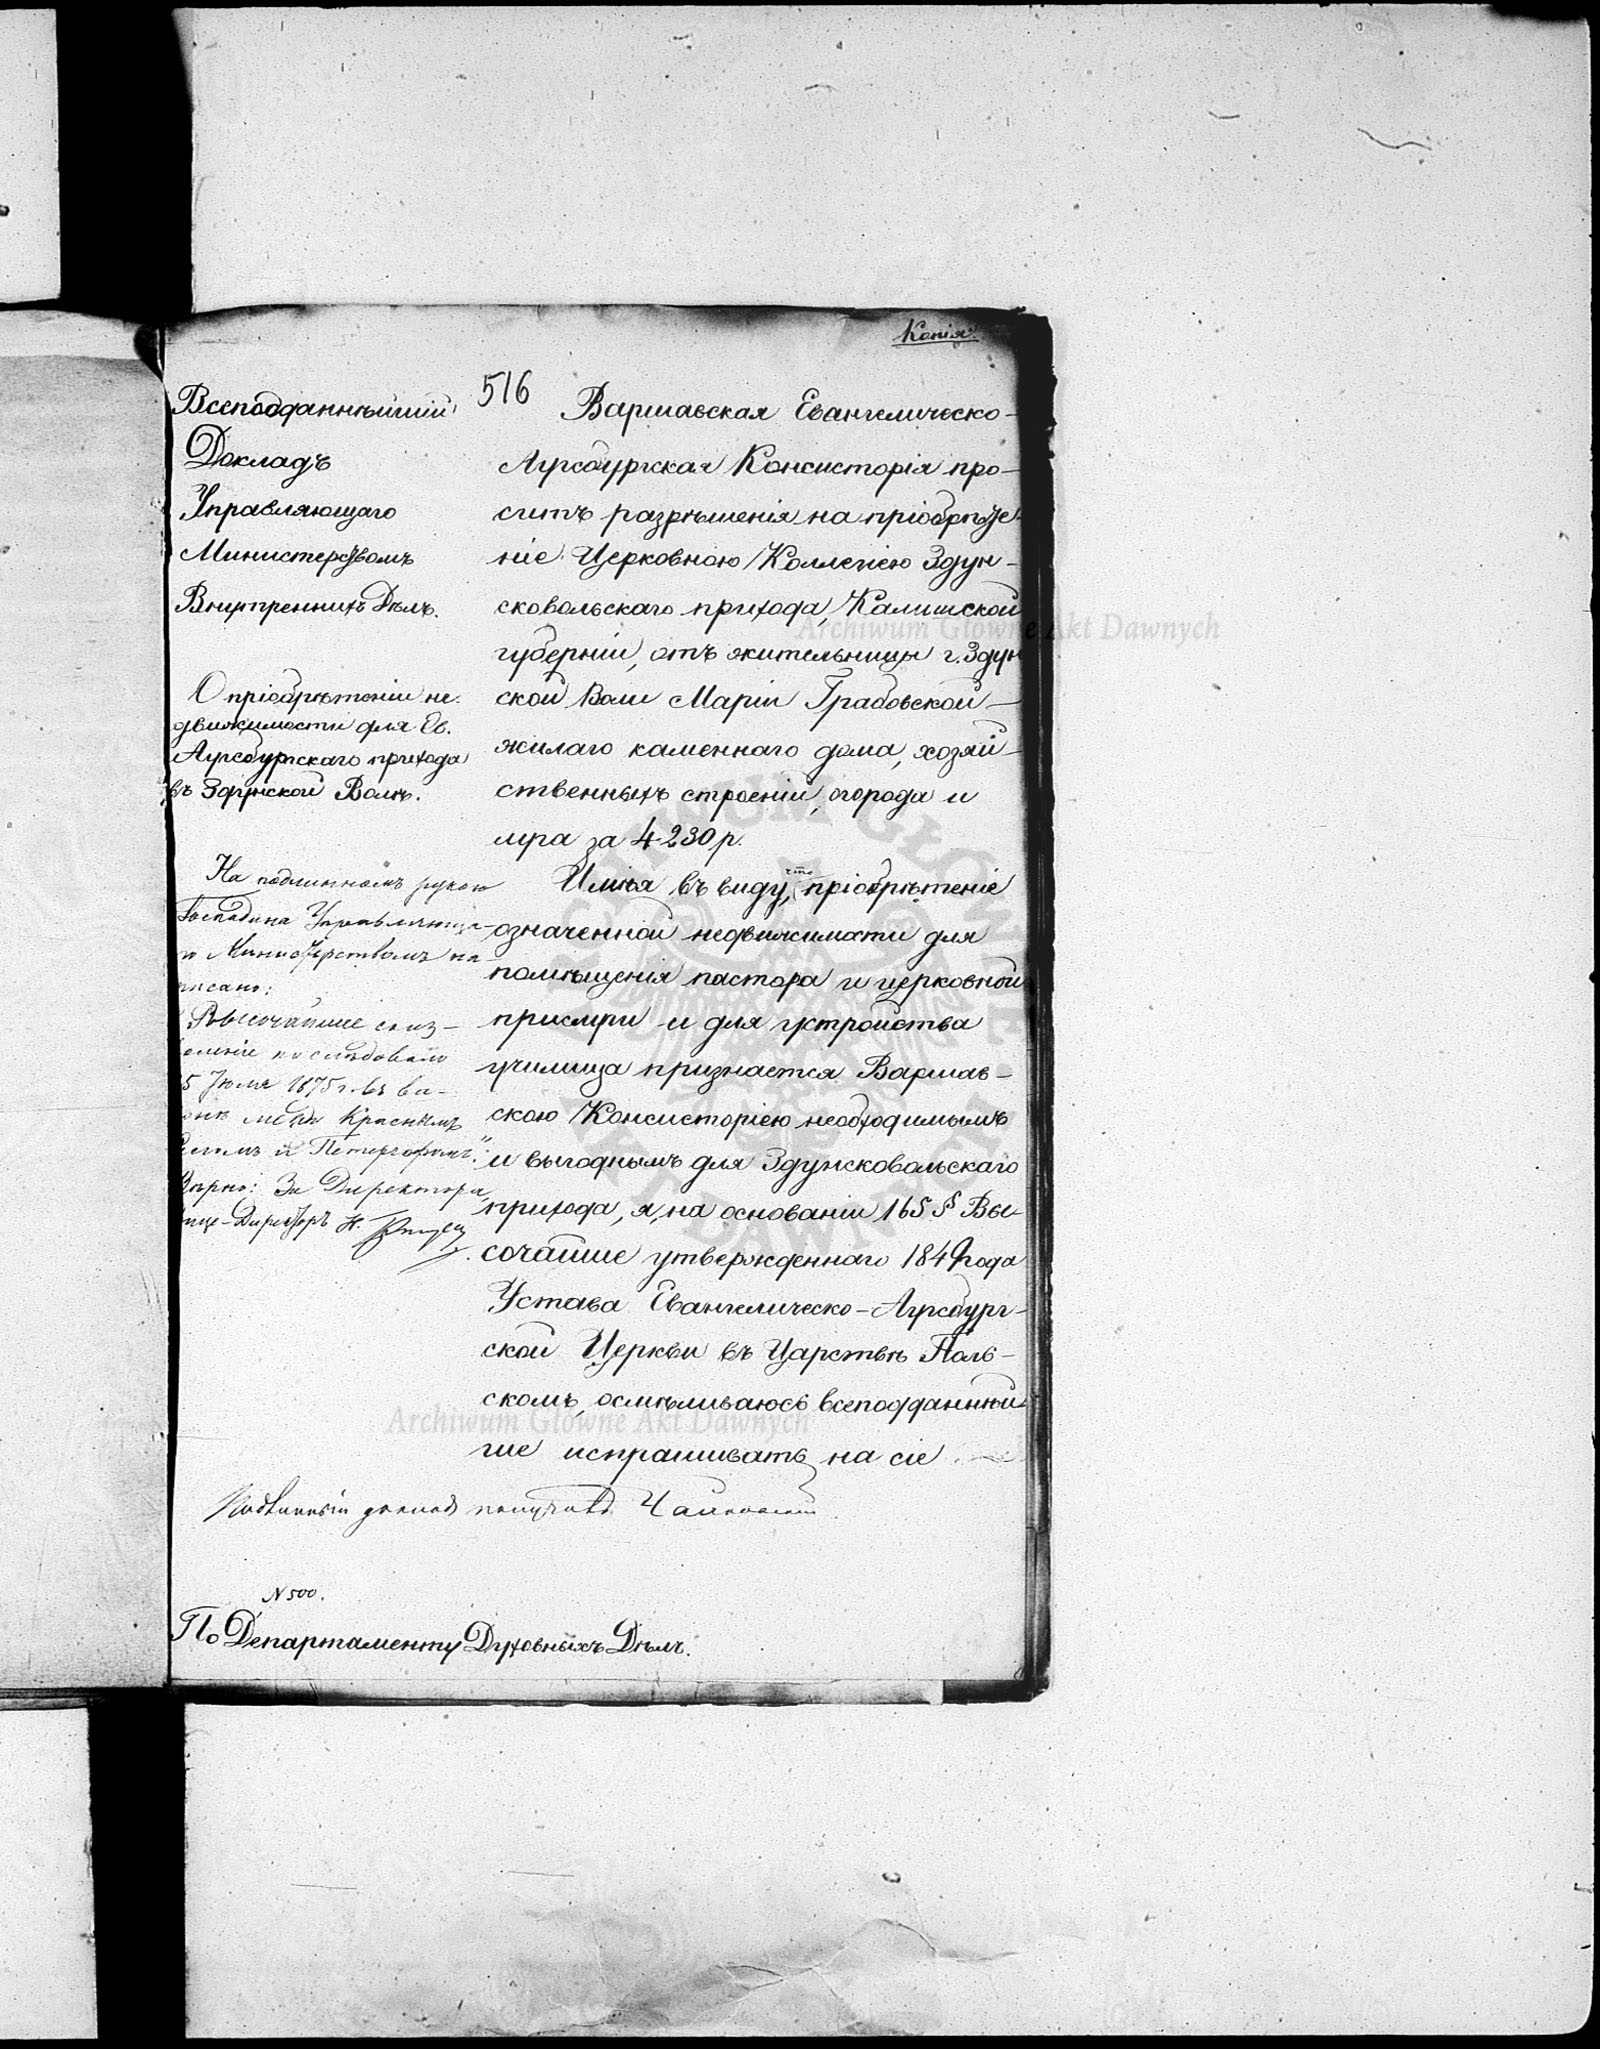 Копія.
516
Всеподданнѣйшій
Докладъ
Управляющаго
Министерствомъ
Внутреннихъ Дѣлъ.
О пріобрѣтеніи не-
движимости для Ев.
Аугсбургскаго прихода
въ Здунской Волѣ.
На подлинномъ рукою
Господина Управляюща-
го Министерствомъ на-
писано:
Высочайшее соиз-
воленіе послѣдовало
5 Іюля 1875 г. въ ва-
гонѣ между Краснымъ
Селомъ и Петергофомъ."
Вѣрно: За Директора,
Вице-Директоръ
Варшавская Евангелическо-
Аугсбургская Консисторія про-
ситъ разрѣшенія на пріобрѣте-
ніе Церковною Коллегіею Здун-
сковольскаго прихода, Калишской
губерніи, отъ жительницы г. Здун
ской Воли Маріи Грабовской -
жилаго каменнаго дома, хозяй-
ственныхъ строеній, огорода и
луга за 4230 р.
Имѣя въ виду, что пріобрѣтеніе
означенной недвижимости для
помѣщенія пастора и церковной
прислуги и для устройства
училища признается Варшав-
скою Консисторіею необходимымъ
и выгоднымъ для Здунсковольскаго
прихода, я, на основаніи 165 § Вы-
сочайше утвержденнаго 1849 года
Устава Евангелическо-Аугсбург-
ской Церкви въ Царствѣ Поль-
скомъ, осмѣливаюсь всеподданнѣй-
ше испрашивать на сіе
Подлинный докладъ получилъ Чайковскій
N 500.
По Департаменту Духовныхъ Дѣлъ.
Archiwum Główne Akt Dawnych
Archiwum Główne Akt Dawnych
ARCHIWUM GŁÓWNE AKT DAWNYCH